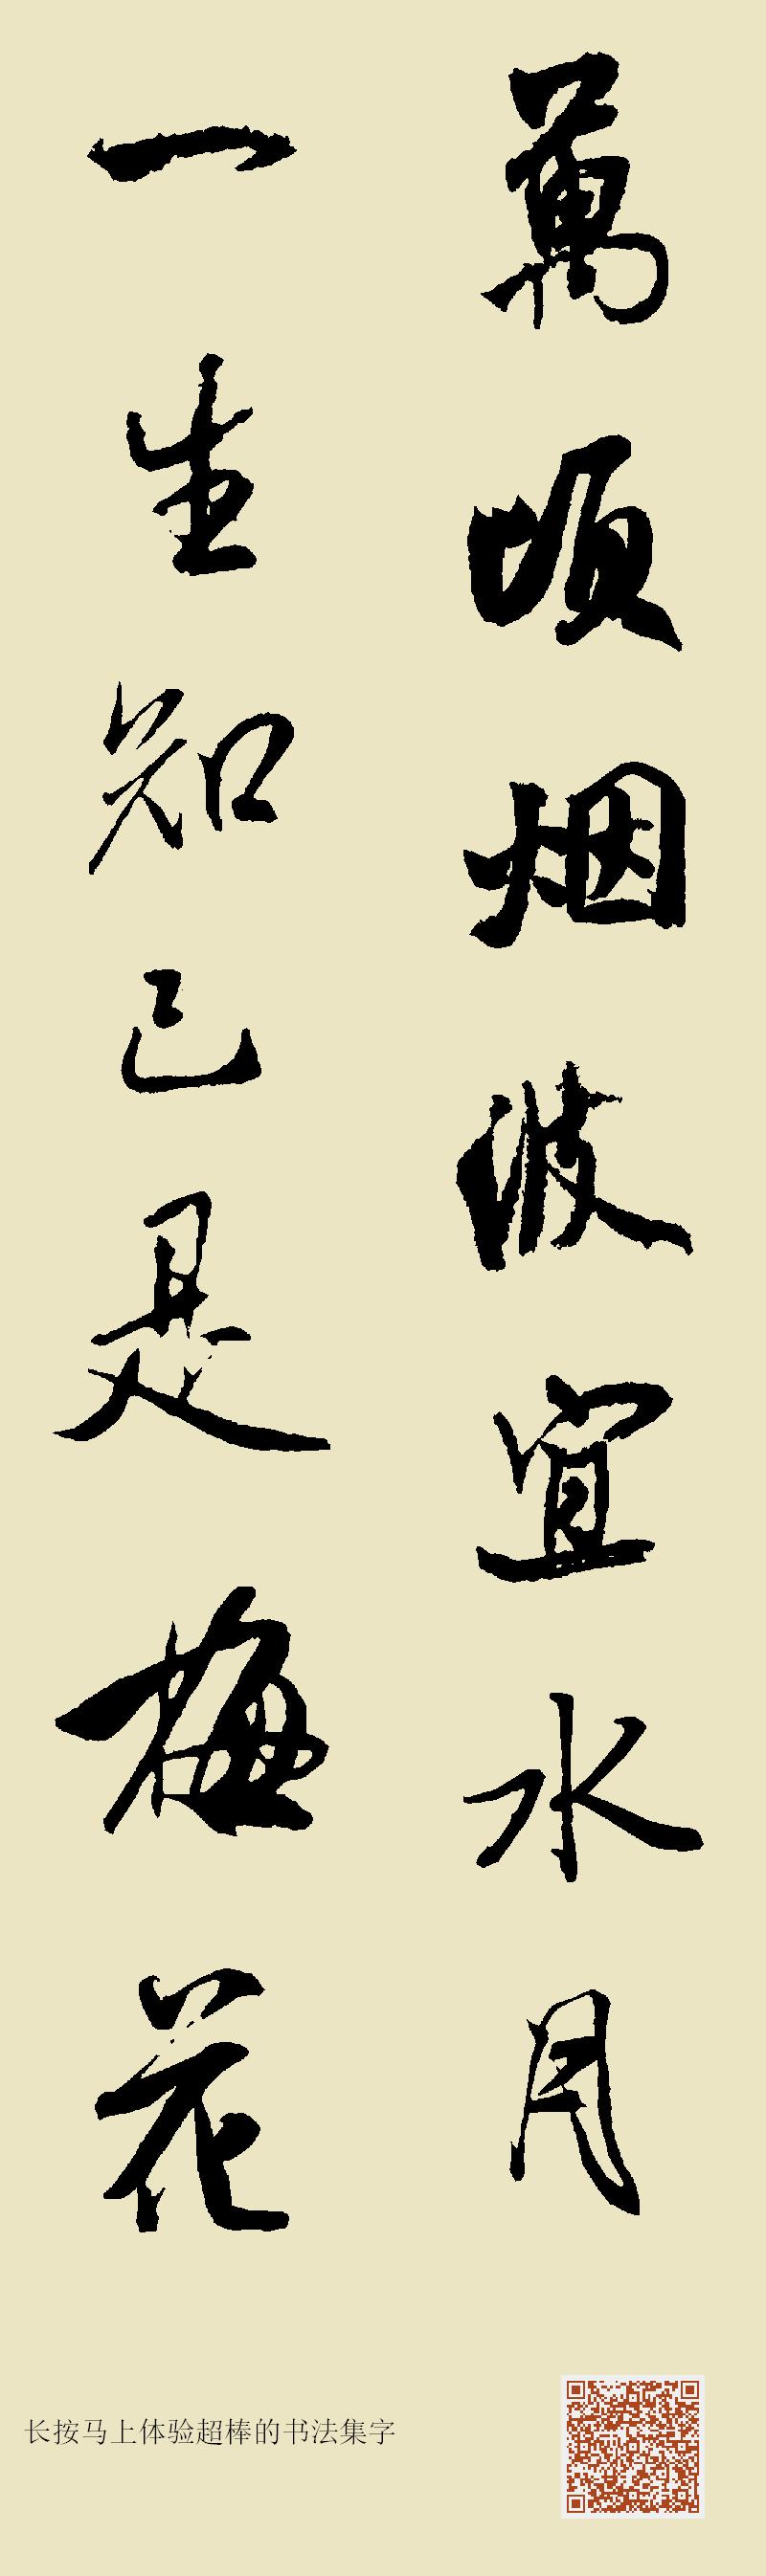 萬頃烟波宜水月
一生知己是梅花
长按马上体验超棒的书法集字